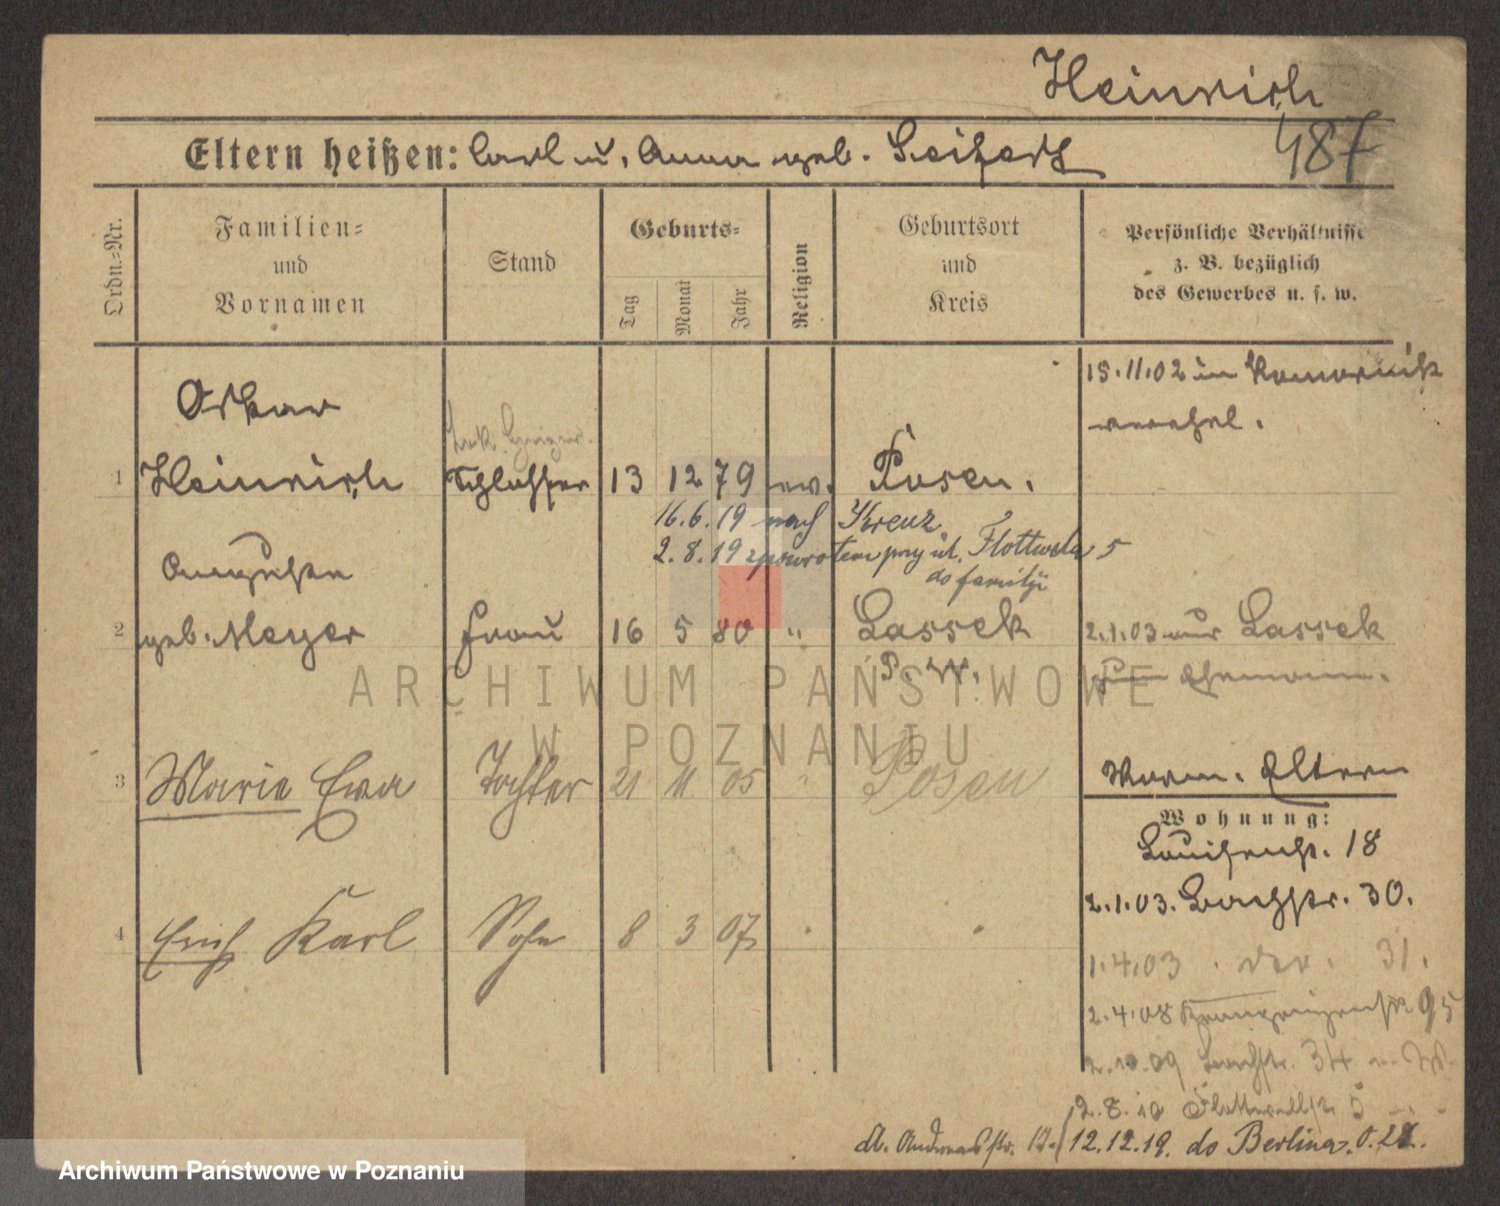 Heinrich
487
Eltern heißen: Carl u. Anna geb. Seifert
Ordn.-Nr.
Familien-
und
Vornamen
Stand
Geburts-
Tag
Monat
Jahr
Religion
Geburtsort
und
Kreis
Persönliche Verhältnisse
z. B. bezüglich
des Gewerbes u. s. w.
15.11.02 in Komornik
verehel.
Oskar
1 Heinrich Schlosser 13 12 79 ev. Posen.
16.6.19 nach Kreuz
2.8.19 zpowrotem przy ul. Flottwela 5
do familji
Auguste
2 geb. Meyer Frau 16 5 80 " Lassek 2.1.03 aus Lassek
P. W. zum Ehemann.
3 Marie Ewa Tochter 21 11 05 " Posen
Vorm. Eltern
Wohnung:
Louisenstr. 18
2.1.03. Bachstr. 30.
4 Erich Karl Sohn 8 3 07
1.4.03 31.
2.4.08 95
2.10.09 Bachstr. 34
2.8.19 Flottwellstr. 5
A. Andreasstr. 12.12.19. do Berlina. O.
ARCHIWUM PAŃSTWOWE
W POZNANIU
Archiwum Państwowe w Poznaniu